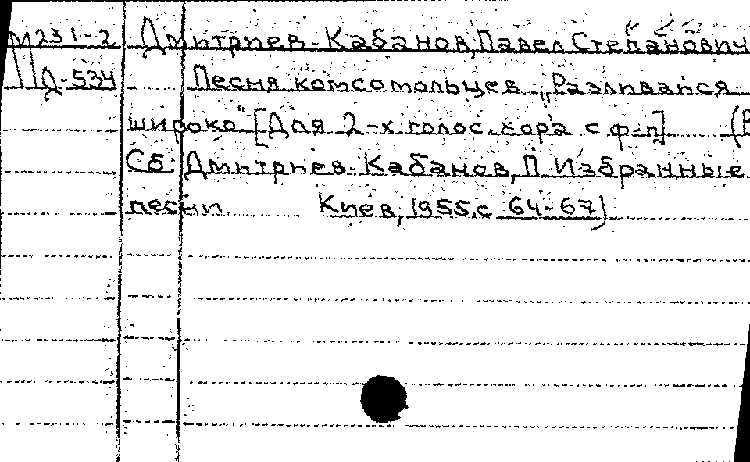 М231-2 Дмитриев-Кабанов, Павел Степанович
Д-534 Песня комсомольцев „Разливайся
широко" [Для 2-х голос. хора с ф-п] (В
Сб: Дмитриев-Кабанов, П. Избранные
песни. Киев, 1955, с 64-67)